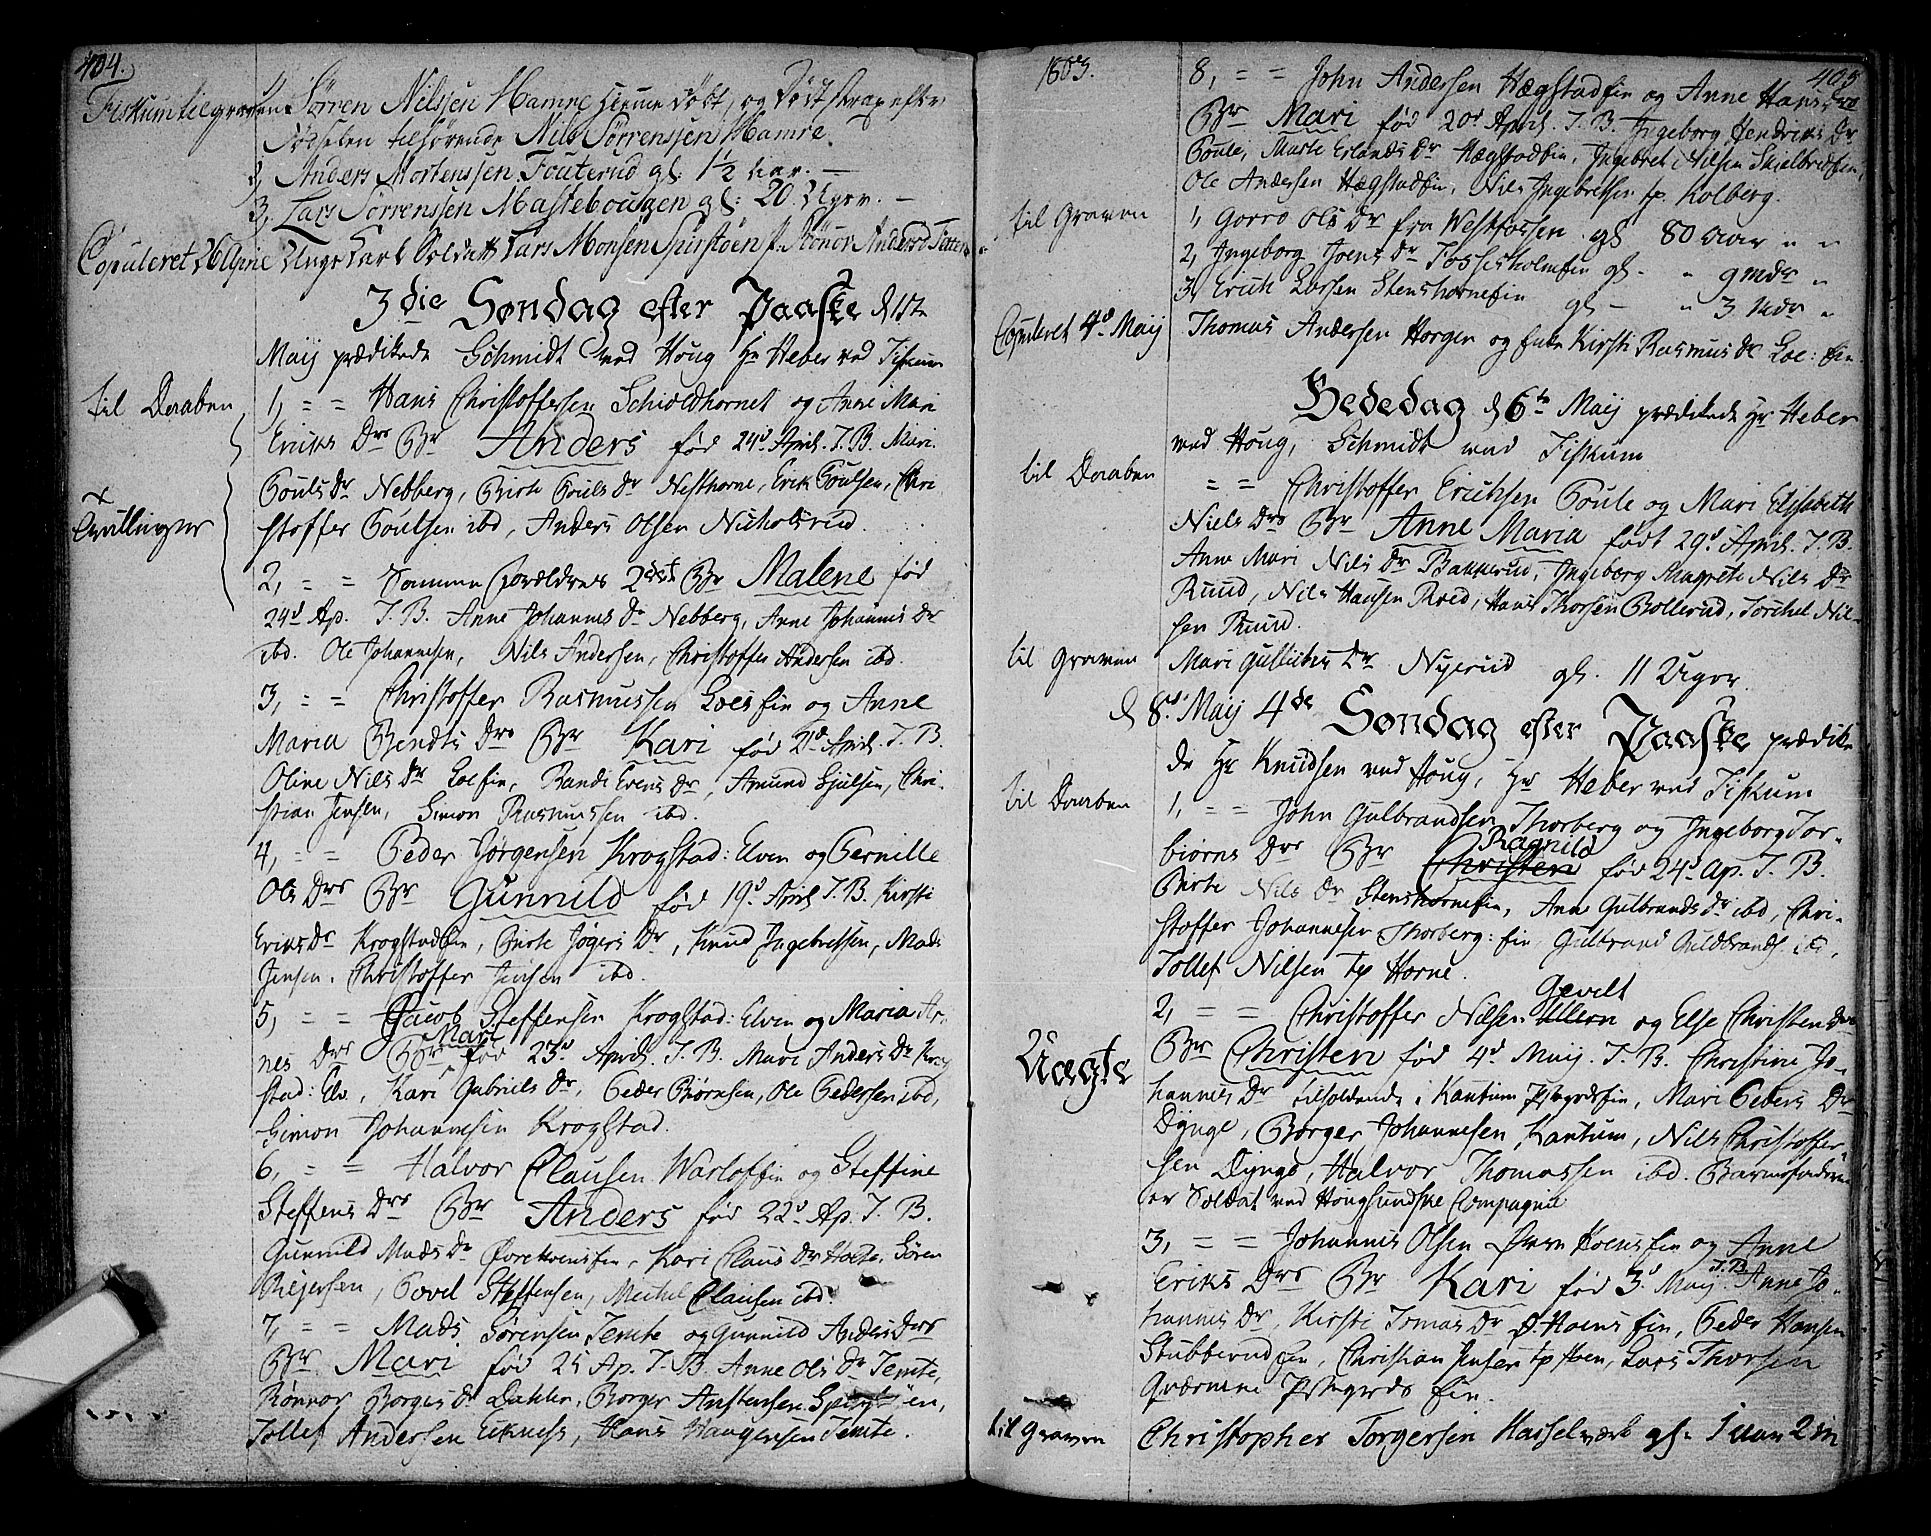 404.
Fiskum til graven 1, Sørren Nilssen Hamre hiemme døbt, og død strax efter
Fødselen tilhørende Nils Sørrenssen Hamre.
2, Anders Mortenssen Fouterud gl: 1½ aar. —
3, Lars Sørrenssen Mastebougen gl: 20. Ugrr. —
Copuleret 26 Apr: Unge Karl Soldatt Lars Monsen P. Rønov Andersd
3die Søndag efter Paaske d 1ste
Maij prædikede Schmidt ved Houg Hr Heber ved Fiskum
til Daaben 1, = = Hans Christoffersen Schioldhornet og Anne Mari
Eriks Drs Br Anders fød 24d April. T. B. Mari
Pouls Dr Nebberg, Birte Pouls Dr Nesthorne, Erik Poulsen, Chri
x
Tvillinger
stoffer Poulsen ibd, Anders Olsen Nicholsrud.
2, = = Samme Forældres 2det Br Malene fød
24d Ap. T. B. Anne Johannes Dr Nebberg, Anne Johannis Dr
ibd. Ole Johannesen, Nils Andersen, Christoffer Andersen ibd.
3, = = Christoffer Rasmussen Loesfin og Anne
Maria Bendts Drs Br Kari fød 2d April. T. B.
Oline Nils Dr Loefin, Randi Evens Dr, Amund Giulsen, Chri-
stian Jensen, Simon Rasmussen ibd.
4, = = Peder Jørgensen Krogstad: Elven og Pernille
Ols Drs Br Gunnild fød 19d April T. B. Kirsti
Eriks Dr Krogstadfin, Birte Jøgers Dr, Knud Ingebretsen, Mads
Jensen. Christoffer Jensen ibd.
5, = = Jacob Steffensen Krogstad: Elven og Maria Ar-
nes Drs Br Mari fød 23d April. T. B. Mari Anders Dr Krog
stad: Elv., Kari Gabriels Dr, Peder Biørnsen, Ole Pedersen ibd,
Simon Johannesen Krogstad.
6, = = Halvor Clausen Warlosfin og Steffine
Steffens Drs Br Anders fød 22d Ap. T. B.
Gunnild Mads Dr Øvrehoensfin, Kari Claus Dr Holte, Søren
Reiersen, Povel Steffensen, Michel Clausen ibd.
7, = = Mads Sørensen Temte og Gunnild Anders Drs
Br Mari fød 25 Ap. T. B. Anne Ols Dr Temte,
Rønnov Borges Dr Dahler, Borger Anstensen
Tollef Andersen Eknes, Hans Haagensen Temte.
1803. 405
8, = = John Andersen Hægstadfin og Anne Hans Drs
Br Mari fød 20d April. T. B. Ingeborg Hendriks Dr
Poule, Marte Erlands Dr Hægstadfin, Ingebret Nilsen Skielbredfin,
Ole Andersen Hægstadfin, Nils Ingebretsen tp Kolberg.
til Graven 1, Gorro Ols Dr fra Westfossen. gl 80 aar " "
2, Ingeborg Joens Dr Fossesholmfin gl. " 9 mdr "
3, Erich Larsen Stenshornefin gl — " 3 Mdr "
Copuleret 4d Maij Thomas Andersen Horgen og Enke Kirsti Rasmus Dr Loe: fin
Bededag d 6te Maij prædikede Hr Heber
ved Houg, Schmidt ved Fiskum
til Daaben = = Christoffer Erichsen Poule og Mari Elisabeth
Niels Drs Br Anne Maria født 29d April. T. B.
Anne Mari Nils Dr Bakkerud, Ingeborg Margrete Nils Dr
Ruud, Nils Hansen Roed, Hans Thorsen Bollerud, Torchel Nil-
sen Ruud.
til Graven Mari Gullichs Dr Nyerud gl. 11 Ugrr
d 8d Maij 4de Søndag efter Paaske prædike
de Hr Knudsen ved Houg, Hr Heber ved Fiskum
til Daaben 1, = = John Gulbrandsen Thorberg og Ingeborg Tor-
biørns Drs Br Christen Ragnild fød 24d Ap. T. B.
Birte Nils Dr Stenshornefin, Anne Gulbrands Dr ibd, Chri-
stoffer Johannesen Thorberg: fin, Gulbrand Guldbrands. ibd,
Tollef Nilsen tp Horne.
Uægte 2, = = Christoffer Nilsen Ullern Gevelt og Else Christen Drs
Br Christen fød 4d Maij. T. B. Christine Jo-
hannes Dr tilholdende i Kantum Pstgrdsfin, Mari Peders Dr
Dynge, Borger Johannesen Kantum, Nils Christoffer-
sen Dynge, Halvor Thomassen ibd. Barnefaderen
er Soldat ved Hougsundske Compagnie
3, = = Johannes Olsen Øvern Hoensfin og Anne
Eriks Drs Br Kari fød 3d Maij. T. B. Anne Jo-
hannes Dr, Kirsti Tomas Dr Ø. Hoens fin, Peder Hansen
Stubberudfin, Christian Jensen tp Hoen, Lars Thorsen
Qværnene Pstgrds fin.
til Graven Christopher Torgersen Hasselværk gl. 1 aar 2 m